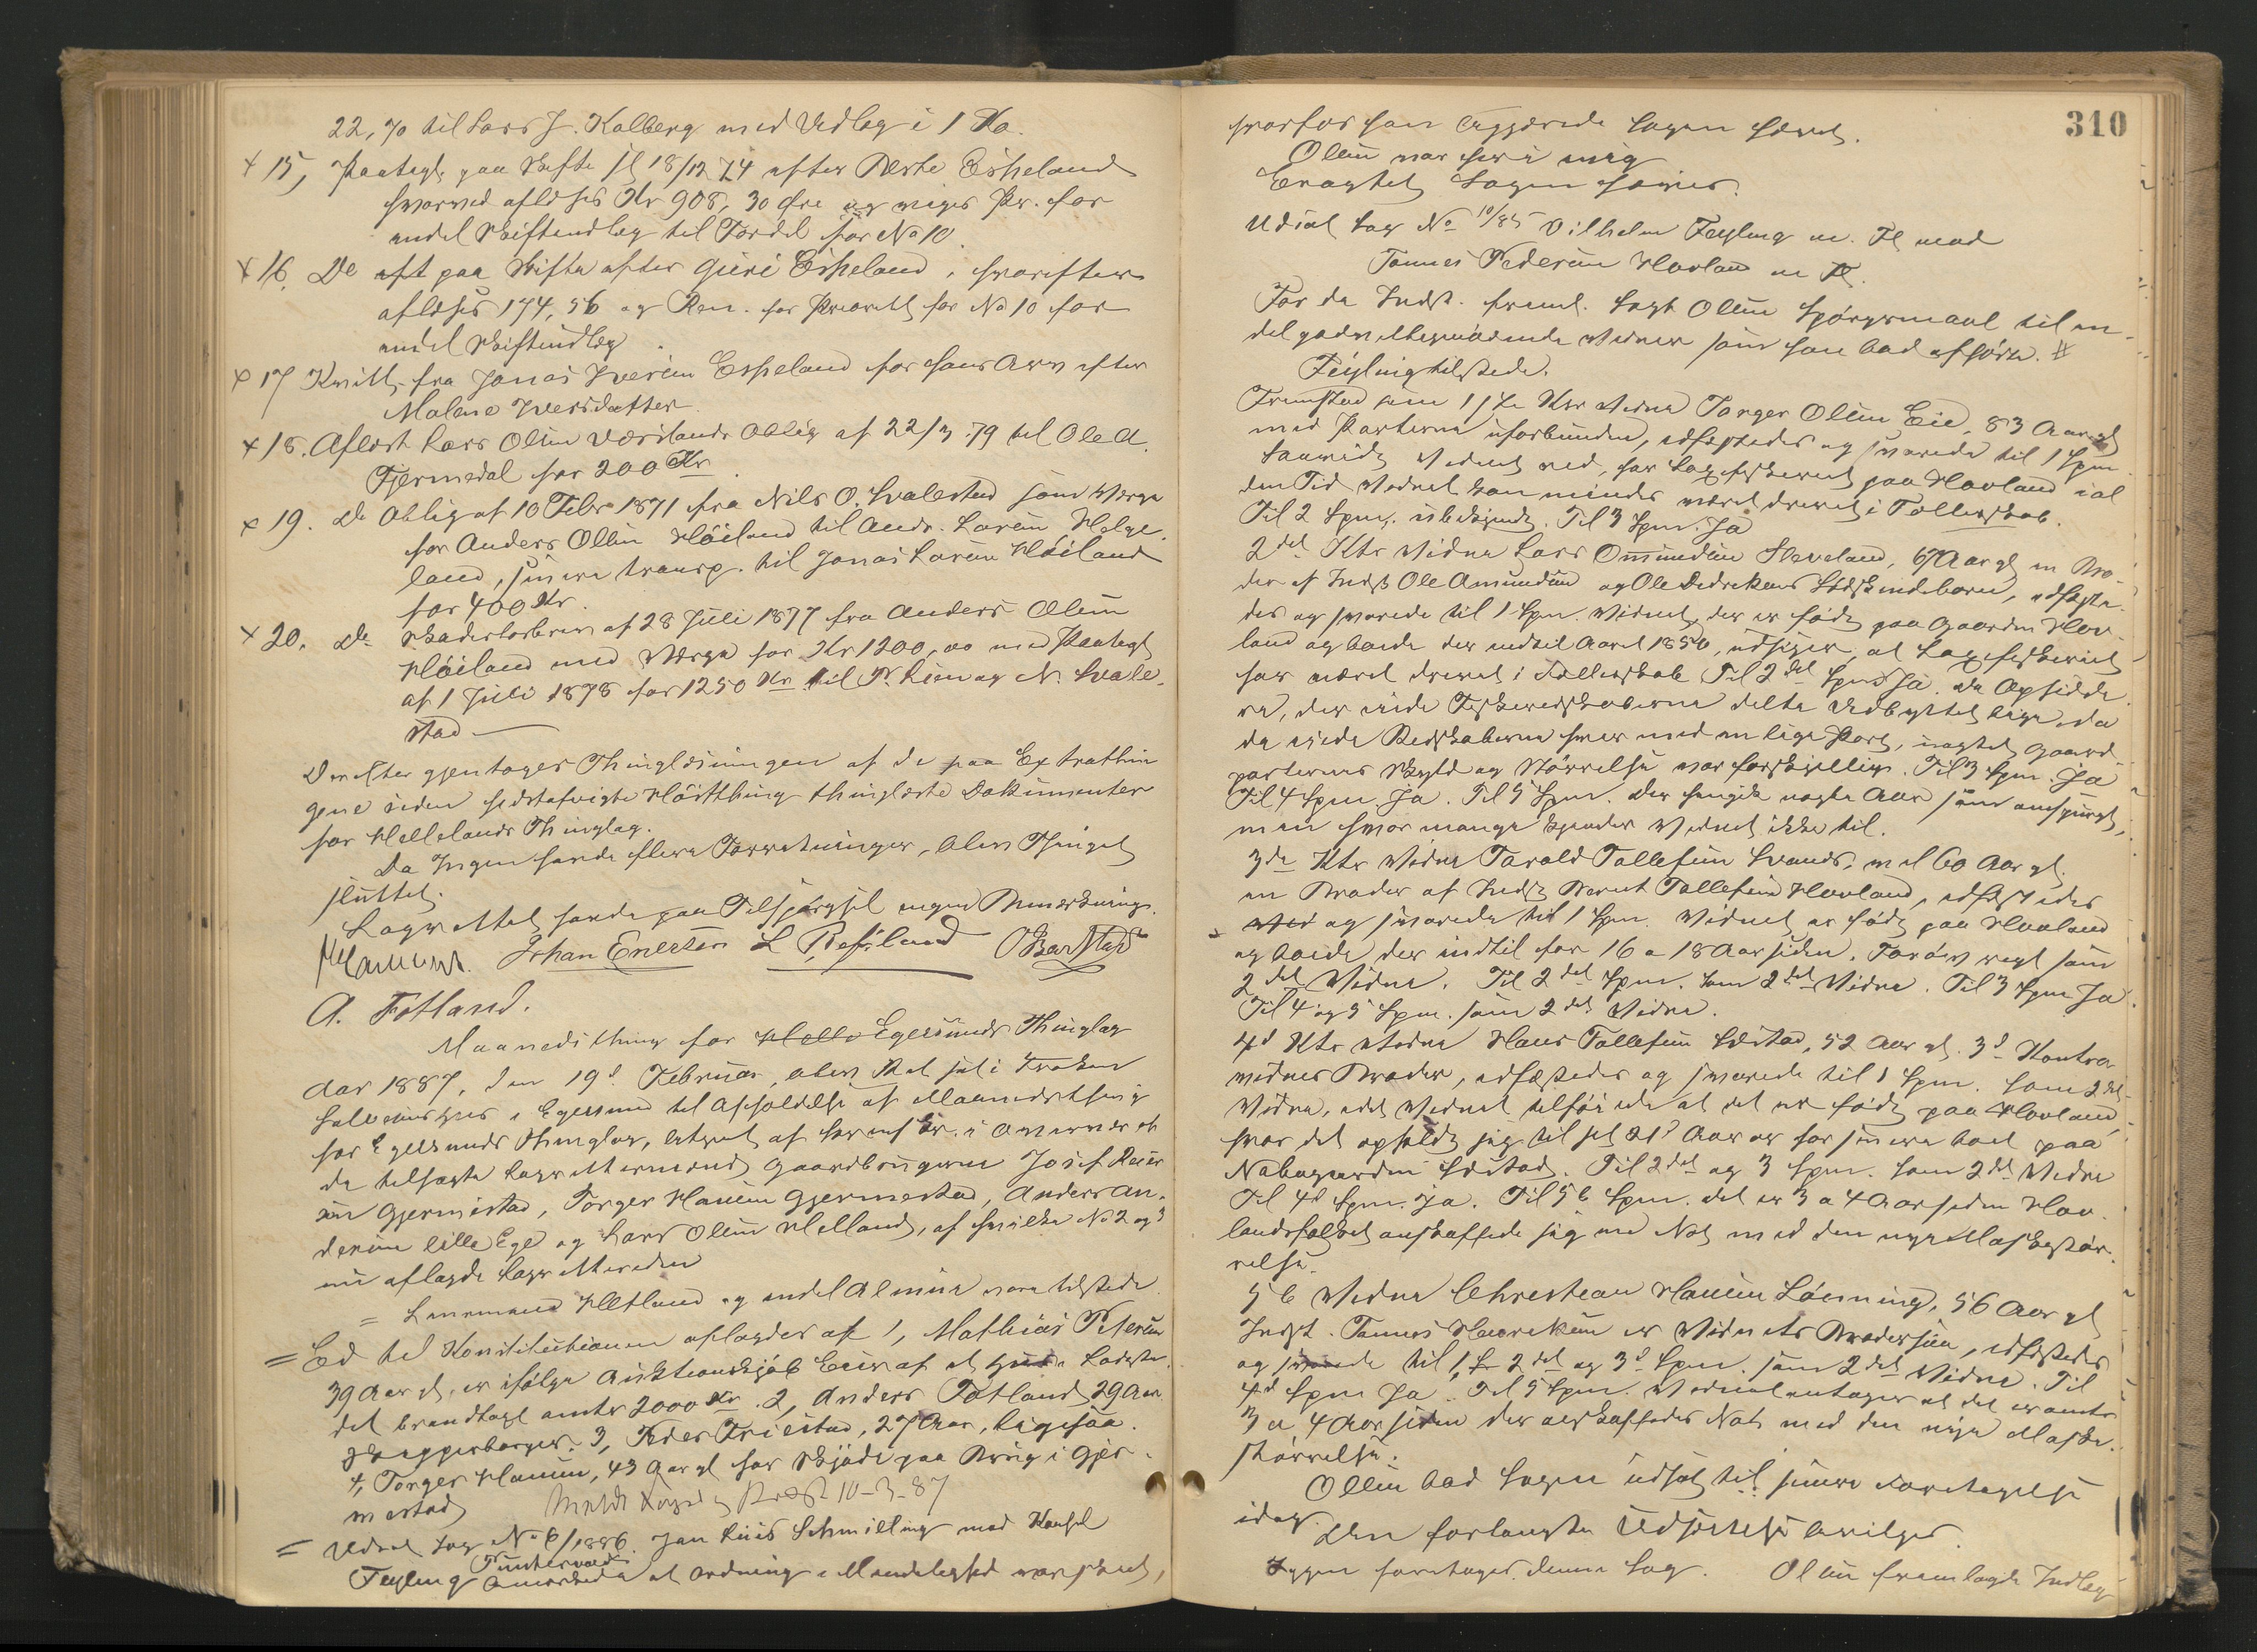 22,70 til Lars J. Kalberg med Udlæg i 1 Ko.
+ 15, Paategn. paa Skifte fh 18/12 74 efter Berte Espeland
hvorved aflyses Kr 908, 30 Øre og viges Pr. for
endel Skifteudlæg til Fordel for No 10.
+ 16. Do aft paa Skifte efter Guri Espeland, hvorefter
aflyses 174,56 og Ren. for Prioritet for No 10 for
endel Skifteudlæg.
+ 17 Kvitt. fra Jonas Iversen Espeland for hans Arv efter
Malene Iversdatter.
+ 18. Aflæst Lars Olsen Værslands Oblig af 22/3 79 til Ole A.
Tjermedal for 200 Kr.
+ 19. Do Oblig af 10 Febr 1871 fra Nils O. Svalestad som Værge
for Anders Olsen Höiland til Andr. Larsen Helge-
land, senere transp. til Jonas Larsen Höiland
for 400 Kr.
+ 20. Do Skadesløsbrev af 28 Juli 1877 fra Anders Olsen
Höiland med Værge for Kr 1200,00 med Paategn
af 1 Juli 1878 for 1250 Kr til P. Lien og N. Svale-
stad
Derefter gjentages Thinglæsningen af de paa Extrathin
gene siden sidstafvigte Høstthing thinglæste Dokumenter
for Hellelands Thinglag.
Da Ingen havde flere Forretninger, blev Thinget
sluttet.
Lagrettet havde paa Tilspørgsel ingen Bemærkninger.
Johan Enertsen L Refsland O Barstad
A. Fotland.
Maanedsthing for Helle Egersunds Thinglag
Aar 1887, den 19d Februar, blev Ret sat i Enken
Salvesens Huus i Egersund til Afholdelse af Maanedsthing
for Egersunds Thinglag, betjent af Sorenskr. i Overvær af
de tilsagte Lagrettesmænd, Gaardbrugerne Josef Reier
sen Gjermestad, Torger Hansen Gjermestad, Anders An-
dersen lille Ege og Lars Olsen Helland, af hvilke No 2 og 3
nu aflagde Lagretteseden
= Lensmand Hetland og endel Almue vare tilstede.
= Ed til Konstitutionen aflagdes af 1, Mathias Petersen
39 Aar gl, er ifølge Auktionsskjøde Eier af et Huus i Ladeste-
det brandtaxt omtr 2000 Kr. 2, Anders Fotland 29 Aar
Skipperborger. 3, Peder Friestad, 27 Aar, ligesaa.
4, Torger Hansen, 43 Aar gl har Skjøde paa Brug i Gjer-
mestad
10-3-87
= Udsat Sag No 6/1886. Jan Luis Schmilling mod Konsul
Feyling Puntervold anmærkede at Ordning i Mindelighed var skeet,
310
hvorfor han begjærede Sagen hævet.
Olsen var heri enig
Eragtet Sagen hæves.
Udsat Sag No 10/85 Vilhelm Feyling m. Fl mod
Tønnes Pedersen Hovland m Fl.
For de Indst. freml. Sagf. Olsen Spørgsmaal til en
del godvilligmødende Vidner som han bad afhørt. #
Feyling tilstede.
Fremstod som 1ste Ktr Vidne Torger Olsen Eie, 83 Aar gl
med Parterne uforbunden, edfæstedes og svarede til 1 Spm
Saavidt Vidnet ved, har Laxefiskeriet paa Hovland i al
den Tid Vidnet kan mindes været drevet i Fællesskab.
Til 2 Spm. ubekjendt. Til 3 Spm. Ja
2det Ktr Vidne Lars Omundsen Steveland, 67 Aar gl en Bro-
der af Indst Ole Amundsen og Ole Didrikens Sødskendebarn, edfæste-
des og svarede til 1 Spm. Vidnet, der er født paa Gaarden Hov-
land og boede der indtil Aaret 1850, udsiger, at Laxefiskeriet
har været drevet i Fællesskab. Til 2det Spm Ja. De Opsidde
re, der eiede Fiskeredskaberne delte Udbyttet lige, da
de eiede Redskaberne hver med en lige Part, uagtet Gaard-
parternes Skyld og Størrelse var forskjellig. Til 3 Spm. Ja
Til 4 Spm. Ja. Til 5 Spm. Der hengik nogle Aar som omspurgt,
men hvor mange kjender Vidnet ikke til.
3de Ktr Vidne Tarald Tollefsen Svands, mel 60 Aar gl.
en Broder af Indst Bernt Tollefsen Hovland, edfæstedes
og svarede til 1 Spm. Vidnet er født paa Hovland
og boede der indtil for 16 a 18 Aar siden. Forøvrigt som
2det Vidne. Til 2det Spm. som 2det Vidne. Til 3 Spm Ja
Til 4 og 5 Spm. som 2det Vidne.
4d Ktr Vidne Hans Tollefsen Sæstad, 52 Aar gl. 3d Kontra
vidnes Broder, edfæstedes og svarede til 1 Spm. som 2det
Vidne, idet Vidnet tilføiede at det er født paa Hovland,
hvor det opholdt sig til sit 21d Aar og har senere boet paa
Nabogaarden Sæstad. Til 2det og 3 Spm. som 2det Vidne
Til 4d Spm. Ja. Til 5te Spm. det er 3 a 4 Aar siden Hov-
landsfolket anskaffede sig en Not med den nye Maskestør-
relse.
5te Vidne Christian Hansen Løvning, 56 Aar gl
Indst. Tønnes Henriksen er Vidnets Brodersøn, edfæstedes
og svarede til 1, 2det og 3d Spm. som 2det Vidne. Til
4d Spm Ja. Til 5 Spm. Vidnet antager at det er omtr
3 a 4 Aar siden der anskaffedes Not med den nye Maske-
størrelse.
Olsen bad Sagen udsat til senere Foretagelse
idag.
Den forlangte Udsættelse bevilges.
Igjen foretages denne Sag. Olsen fremlagde Indlæg